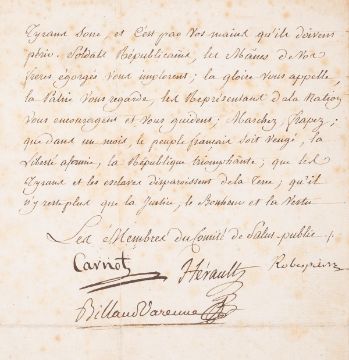 Tyrans sont, et C'est par vos mains qu'ils doivent
périr. Soldats Républicains, les Mânes de Vos
freres égorgés Vous implorent; la gloire Vous appelle,
la Patrie Vous regarde, les Représentans de la Nation
Vous encouragent et Vous guident; Marchez, frapez;
que dans un mois, le peuple français soit Vengé, la
Liberté afermie, la République triomphante; que les
Tyrans et les esclaves disparoissent de la Terre; qu'il
n'y reste plus que la Justice, le Bonheur et la Vertu
Les Membres du Comité de Salut-public
Carnot Hérault Robespierre
Billaud Varenne